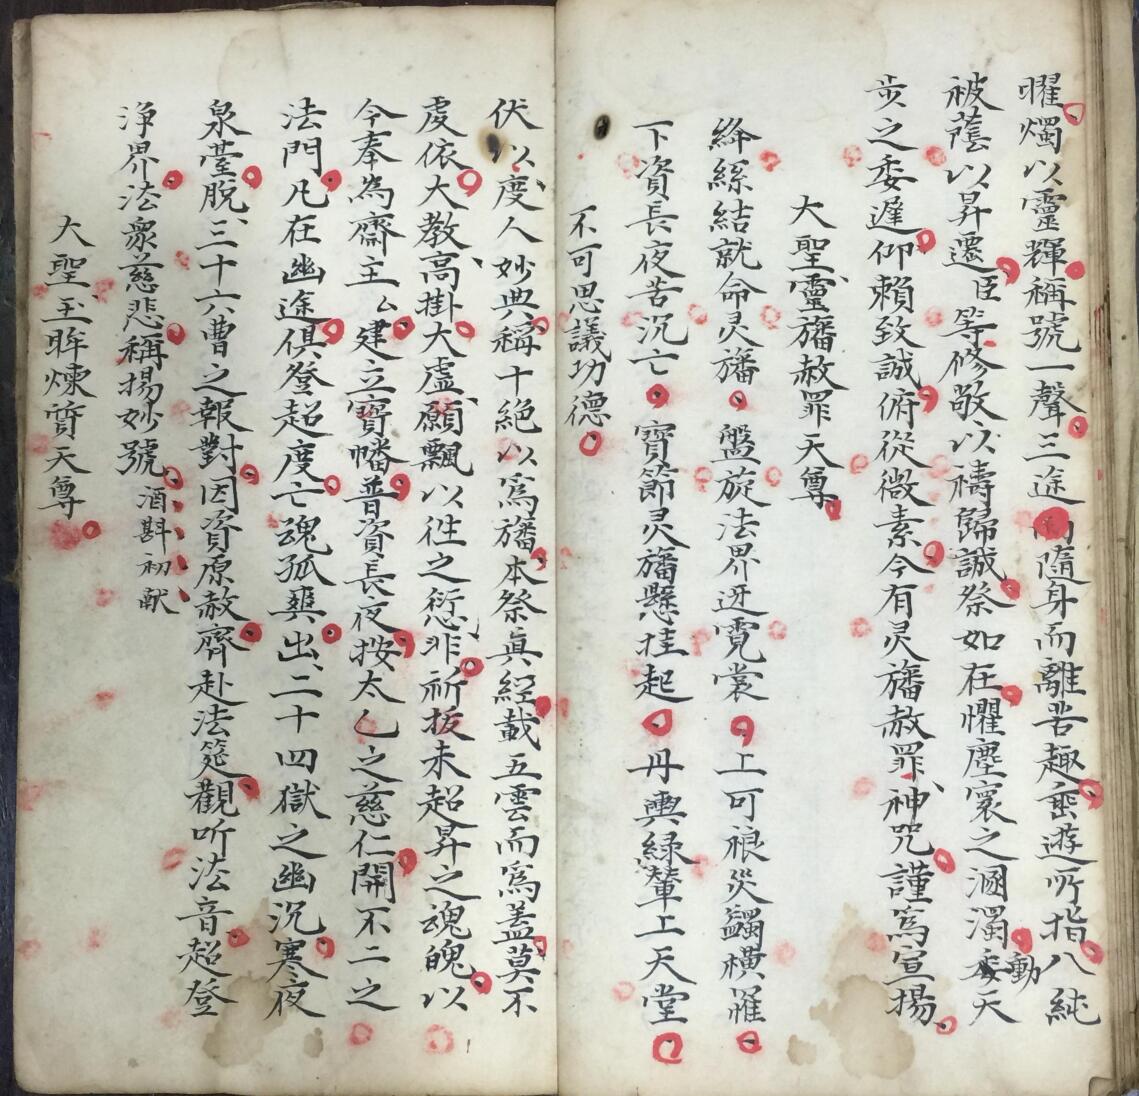 曜燭以靈輝稱號一聲三途隨身而離苦趣遊所指八純
被蔭以昇遷臣等修敬以禱歸誠祭如在懼塵寰之溷濁動天
步之委遲仰賴致誠俯從微素今有灵旛赦罪神咒謹為宣揚
大聖靈旛赦罪天尊
絳絲結就命灵旛盤旋法界迓霓裳上可禳災蠲橫罹
下資長夜苦沉亡寶節灵旛懸挂起丹輿緑輦上天堂
不可思議功德
伏以度人妙典稱十絶以為旛本祭真經載五雲而為蓋莫不
虔依大教高掛大虛願飄以徃之愆非祈拔未超昇之魂魄以
今奉為齋主厶建立寶幡普資長夜按太乙之慈仁開不二之
法門凡在幽途俱登超度亡魂孤爽出二十四獄之幽沉寒夜
泉臺脫三十六曹之報對因資原赦齊赴法筵觀听法音超登
浄界法眾慈悲稱揚妙號 酒斟初献
大聖玉眸煉質天尊